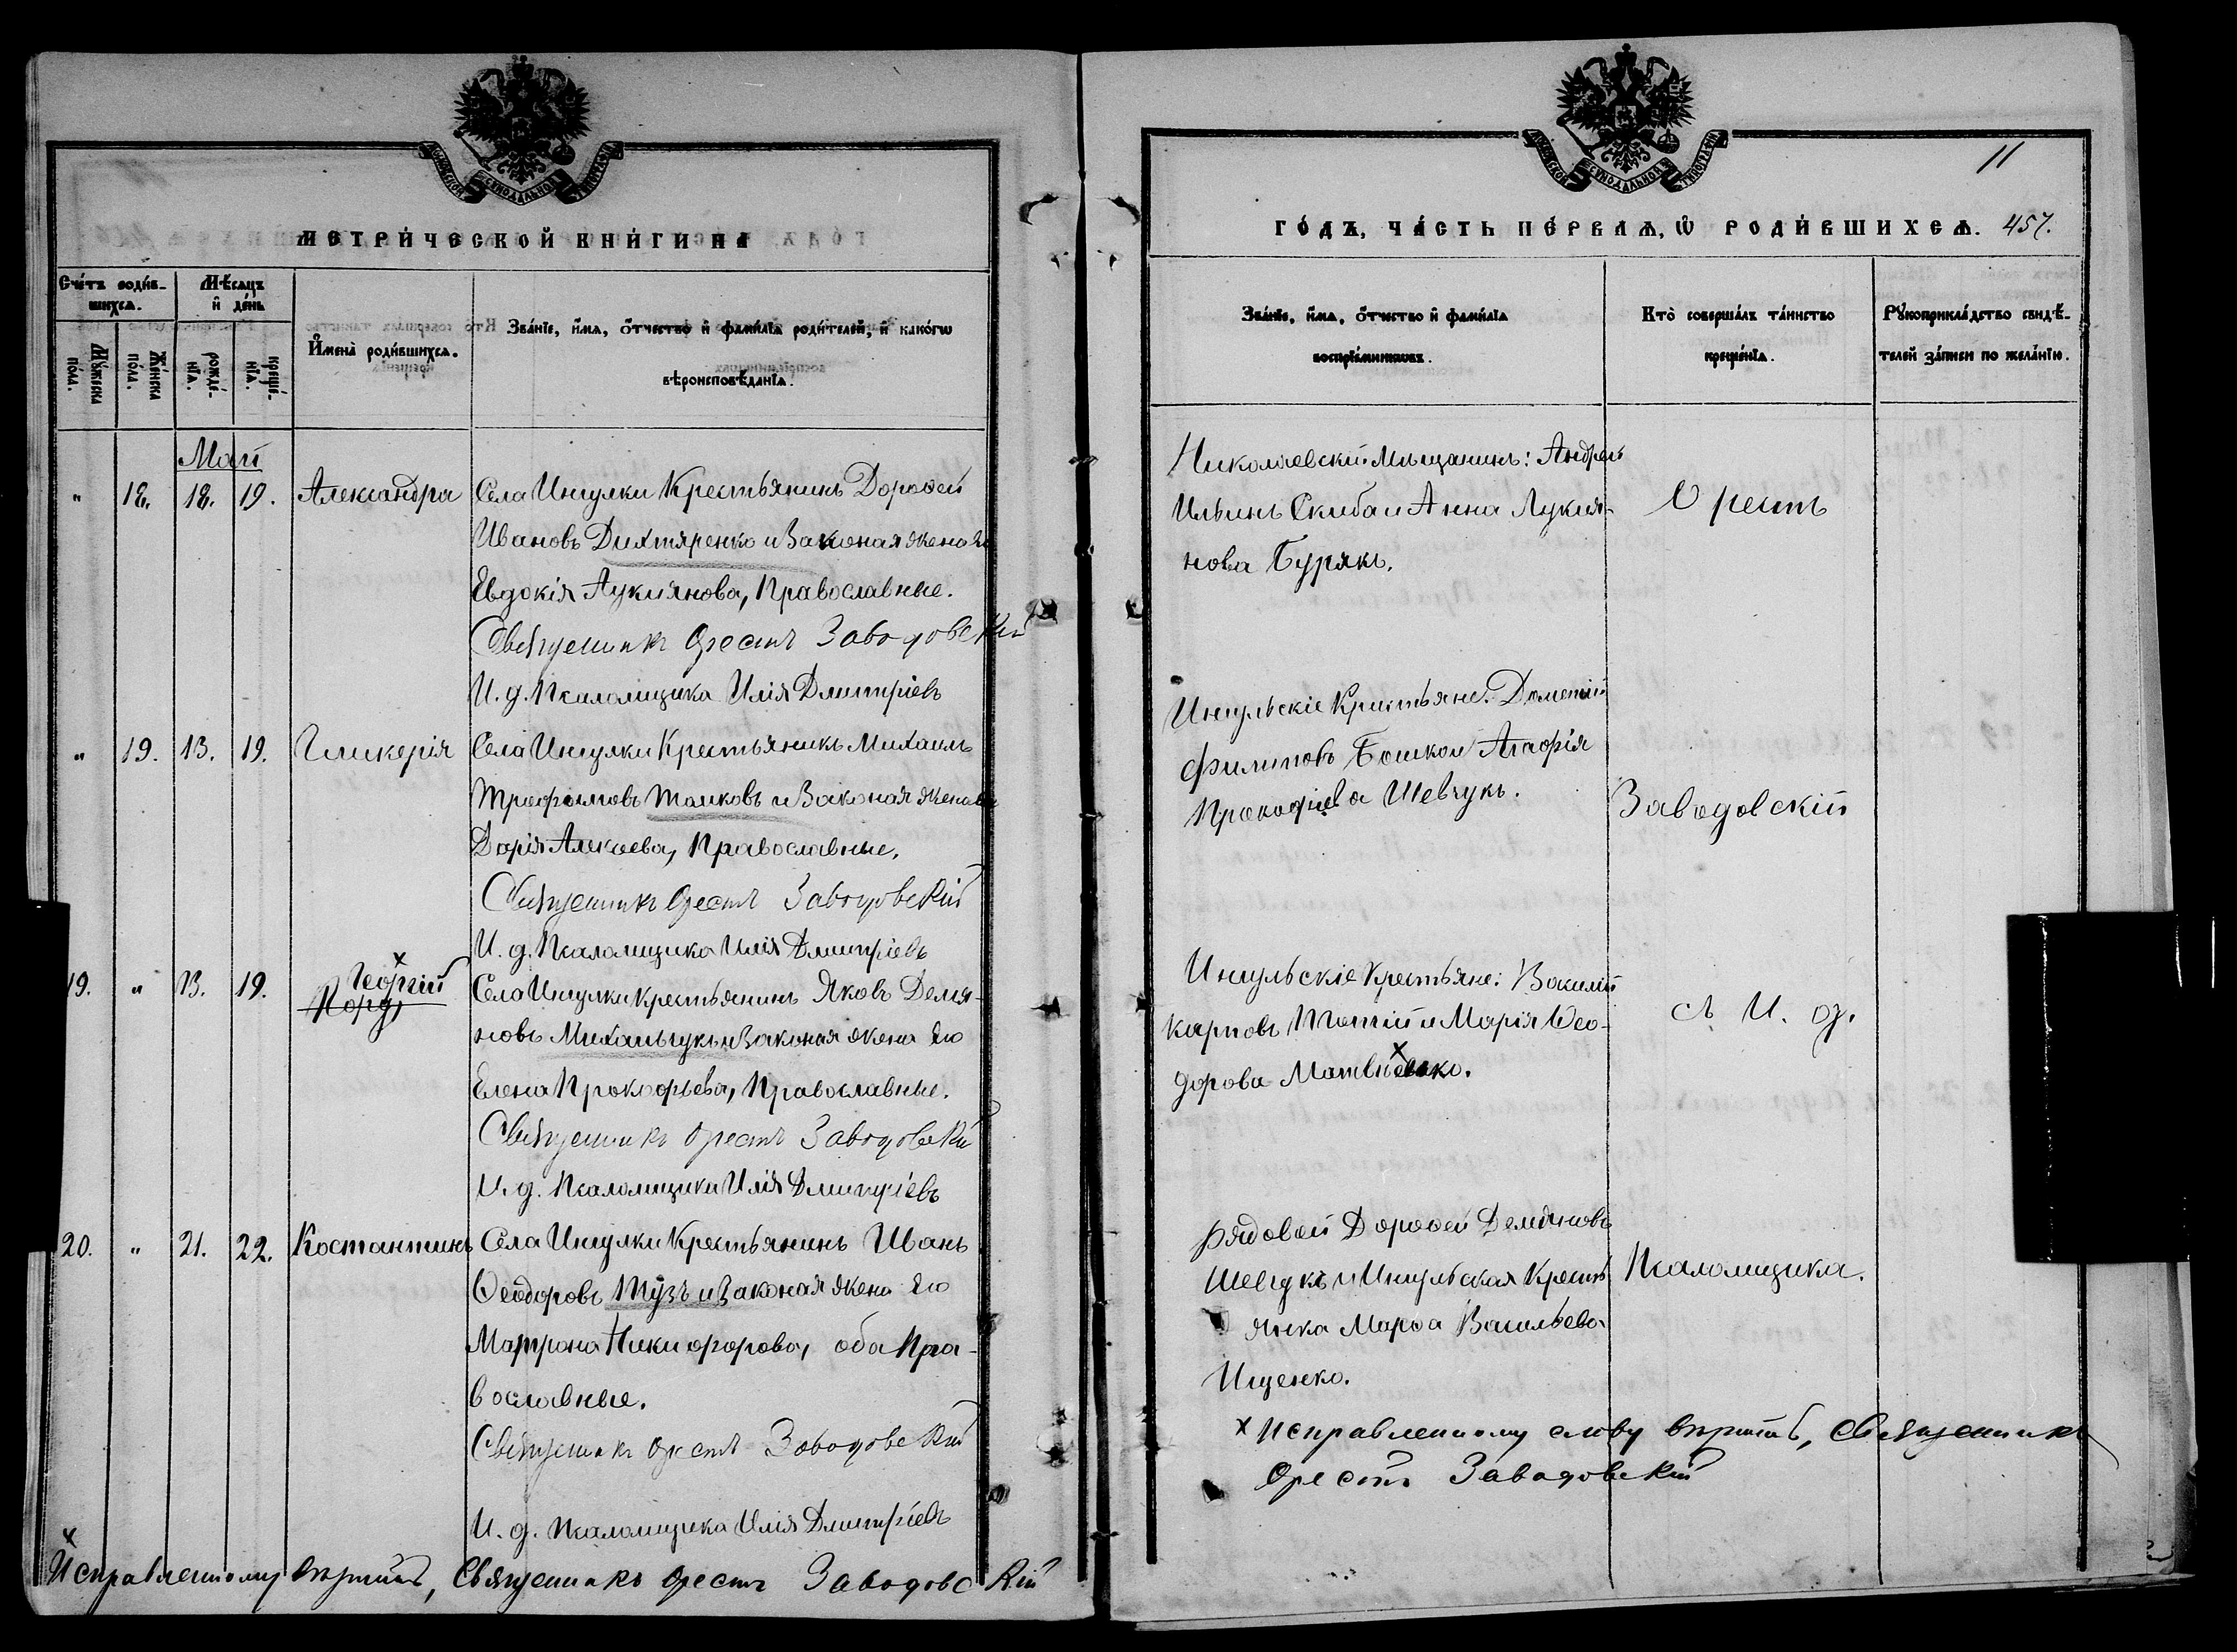 МОСКОВСКОЙ СѴНОДАЛЬНОЙ ТИПОГРАФІИ
МЕТРИ́ЧЕСКОЙ КНИ́ГИ НА
Сче́тъ роди́в-
шихсѧ.
Мѣ́сѧцъ
и҆ де́нь
Мꙋ́жеска
по́ла.
Же́нска
по́ла.
рожде́-
нїѧ.
креще́-
нїѧ.
И҆мена̀ роди́вшихсѧ.
Зва́нїе, и҆́мѧ, ѻ҆́тчество и҆ фамі́лїѧ роди́телей, и҆ како́гѡ
вѣроисповѣ́данїѧ.
Май
" 18. 18. 19. Александра
Села Ингулки Крестьянинъ Дороѳей
Ивановъ Дихтяренко и Законая жена Его
Евдокія Лукиянова, Православные.
Священникъ Орестъ Заводовскій
И. д. Псаломщика Илія Дмитріевъ
" 19. 13. 19. Гликерія
Села Ингулки Крестьянинъ Михаилъ
Трофимовъ Толковъ и Законая жена его
Дарія Алексева, Православные.
Священникъ Орестъ Заводовскій
И. д. Псаломщика Илія Дмитріевъ
19. " 13. 19. х Георгій
Села Ингулки Крестьянинъ Яковъ Демя-
новъ Михальчукъ и Законая жена Его
Елена Прокофьева, Православные.
Священникъ Орестъ Заводовскій
И. д. Псаломщика Илія Дмитріевъ
20. " 21. 22. Костантинъ
Села Ингулки Крестьянинъ Иванъ
Ѳеодоровъ Тузъ и Законая жена Его
Матрона Никифорова, оба Пра-
вославные.
Священникъ Орестъ Заводовскій
И. д. Псаломщика Илія Дмитріевъ
х Исправленному вѣрить, Священникъ Орестъ Заводовскій
МОСКОВСКОЙ СѴНОДАЛЬНОЙ ТИПОГРАФІИ
11
ГО́ДЪ, ЧА́СТЬ ПЕ́РВАѦ, Ѡ҆ РОДИ́ВШИХСѦ. 457.
Зва́нїе, и҆́мѧ, ѻ҆́тчество и҆ фамі́лїѧ
воспрїе́мниковъ.
Кто̀ соверша́лъ та́инство
креще́нїѧ.
Рꙋкоприкла́дство свидѣ́-
телей за́писи по жела́нїю.
Николаевскій Мѣщанинъ: Андрей
Ильинъ Скиба и Анна Лукия-
нова Бурякъ.
Орестъ
Ингульскіе Крестьяне: Дометій
Филиповъ Бошко и Агафія
Прокофіева Шевчукъ.
Заводовскій
Ингульскіе Крестьяне: Василій
Карповъ и Марія Ѳео-
дорова х
съ И. д.
Рядовой Дороѳей Демяновъ
Шевчукъ и Ингульская Кресть
янка Марѳа Васильева
Ищенко.
Псаломщика.
х Исправленному слову вѣрить, Священникъ
Орестъ Заводовскій